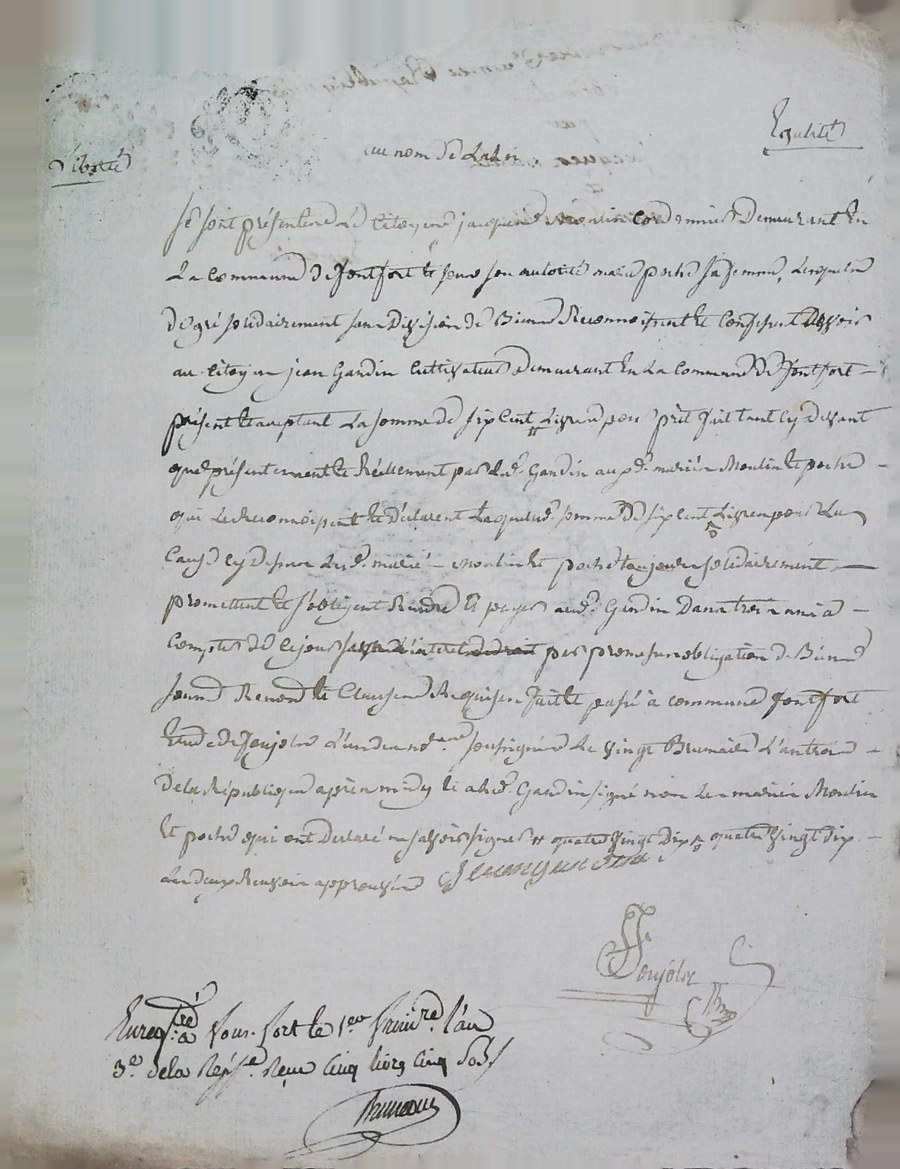 Liberté
Egalité
au nom de La Loi
Se sont présenté Le Citoyen jacques cordonnier Demeurant En
La Commune De fontfort et sous son autorité marie poche sa femme, Lesquels
De gré solidairement sans Division de Biens Reconnoissent et Confessent Devoir
au Citoyen jean Gardin Cultivateur Demeurant En La Commune De fontfort –
présent et acceptant La somme De six Cent Livres pour prêt fait tant Cy devant
que présentement et Réellement par Led. Gardin aux d. mariés Moulin et poche –
qui Le Reconnoissent et Déclarent Laquelle somme De six Cent Livres pour La
Cause Cy dessus Les d. mariés Moulin et poche toujours solidairement –
promettent et s'obligent Rendre et payer aud. Gardin Dans trois années –
Compter De Cejour par promesse obligation De Biens
soumis Renoncé et Clauses Requises fait et passé à commune fontfort
Etude De L'un des no.res soussignés Le Vingt Brumaire L'an trois –
De La République après midy Et a led. Gardin signé non Les mariés Moulin
Et poche qui ont Déclaré ne savoir signer # quatre Vingt Dix quatre Vingt Dix –
Les deux Renvois approuvés Jean gardin
Enregtré à Fons-fort le 1er frimre. l'an
3e de la Répe. Reçu Cinq livres Cinq sols
Bruneau